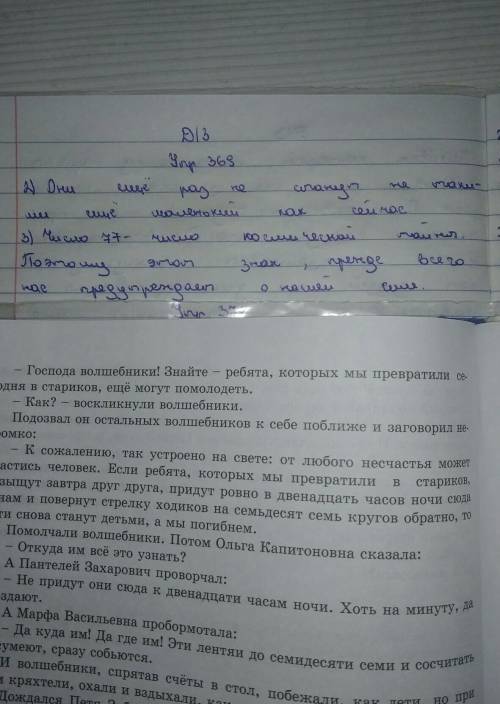 Д/З
Упр 369
2) Они ещё раз не станут не таки-
ми ещё маленький как сейчас
3) Число 77- число космической тайны.
Поэтому этот знак, прежде всего
нас предупреждает о нашей силе.
Упр 37
– Господа волшебники! Знайте – ребята, которых мы превратили се-
одня в стариков, ещё могут помолодеть.
– Как? – воскликнули волшебники.
Подозвал он остальных волшебников к себе поближе и заговорил не-
ромко:
– К сожалению, так устроено на свете: от любого несчастья может
астись человек. Если ребята, которых мы превратили в стариков,
зыщут завтра друг друга, придут ровно в двенадцать часов ночи сюда
нам и повернут стрелку ходиков на семьдесят семь кругов обратно, то
ти снова станут детьми, а мы погибнем.
Помолчали волшебники. Потом Ольга Капитоновна сказала:
– Откуда им всё это узнать?
А Пантелей Захарович проворчал:
– Не придут они сюда к двенадцати часам ночи. Хоть на минуту, да
здают.
А Марфа Васильевна пробормотала:
– Да куда им! Да где им! Эти лентяи до семидесяти семи и сосчитать
умеют, сразу собьются.
И волшебники, спрятав счёты в стол, побежали, как дети, но при
м кряхтели, охали и вздыхали, как
Дождался Петя